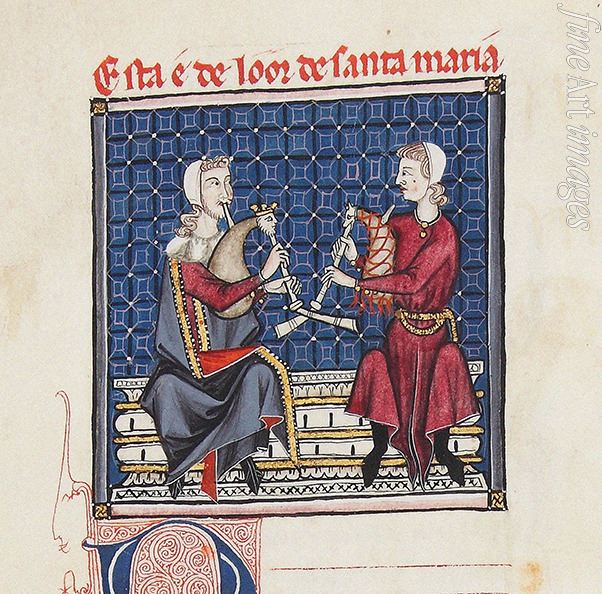 Esta é de loor de santa maria
fineArtimages